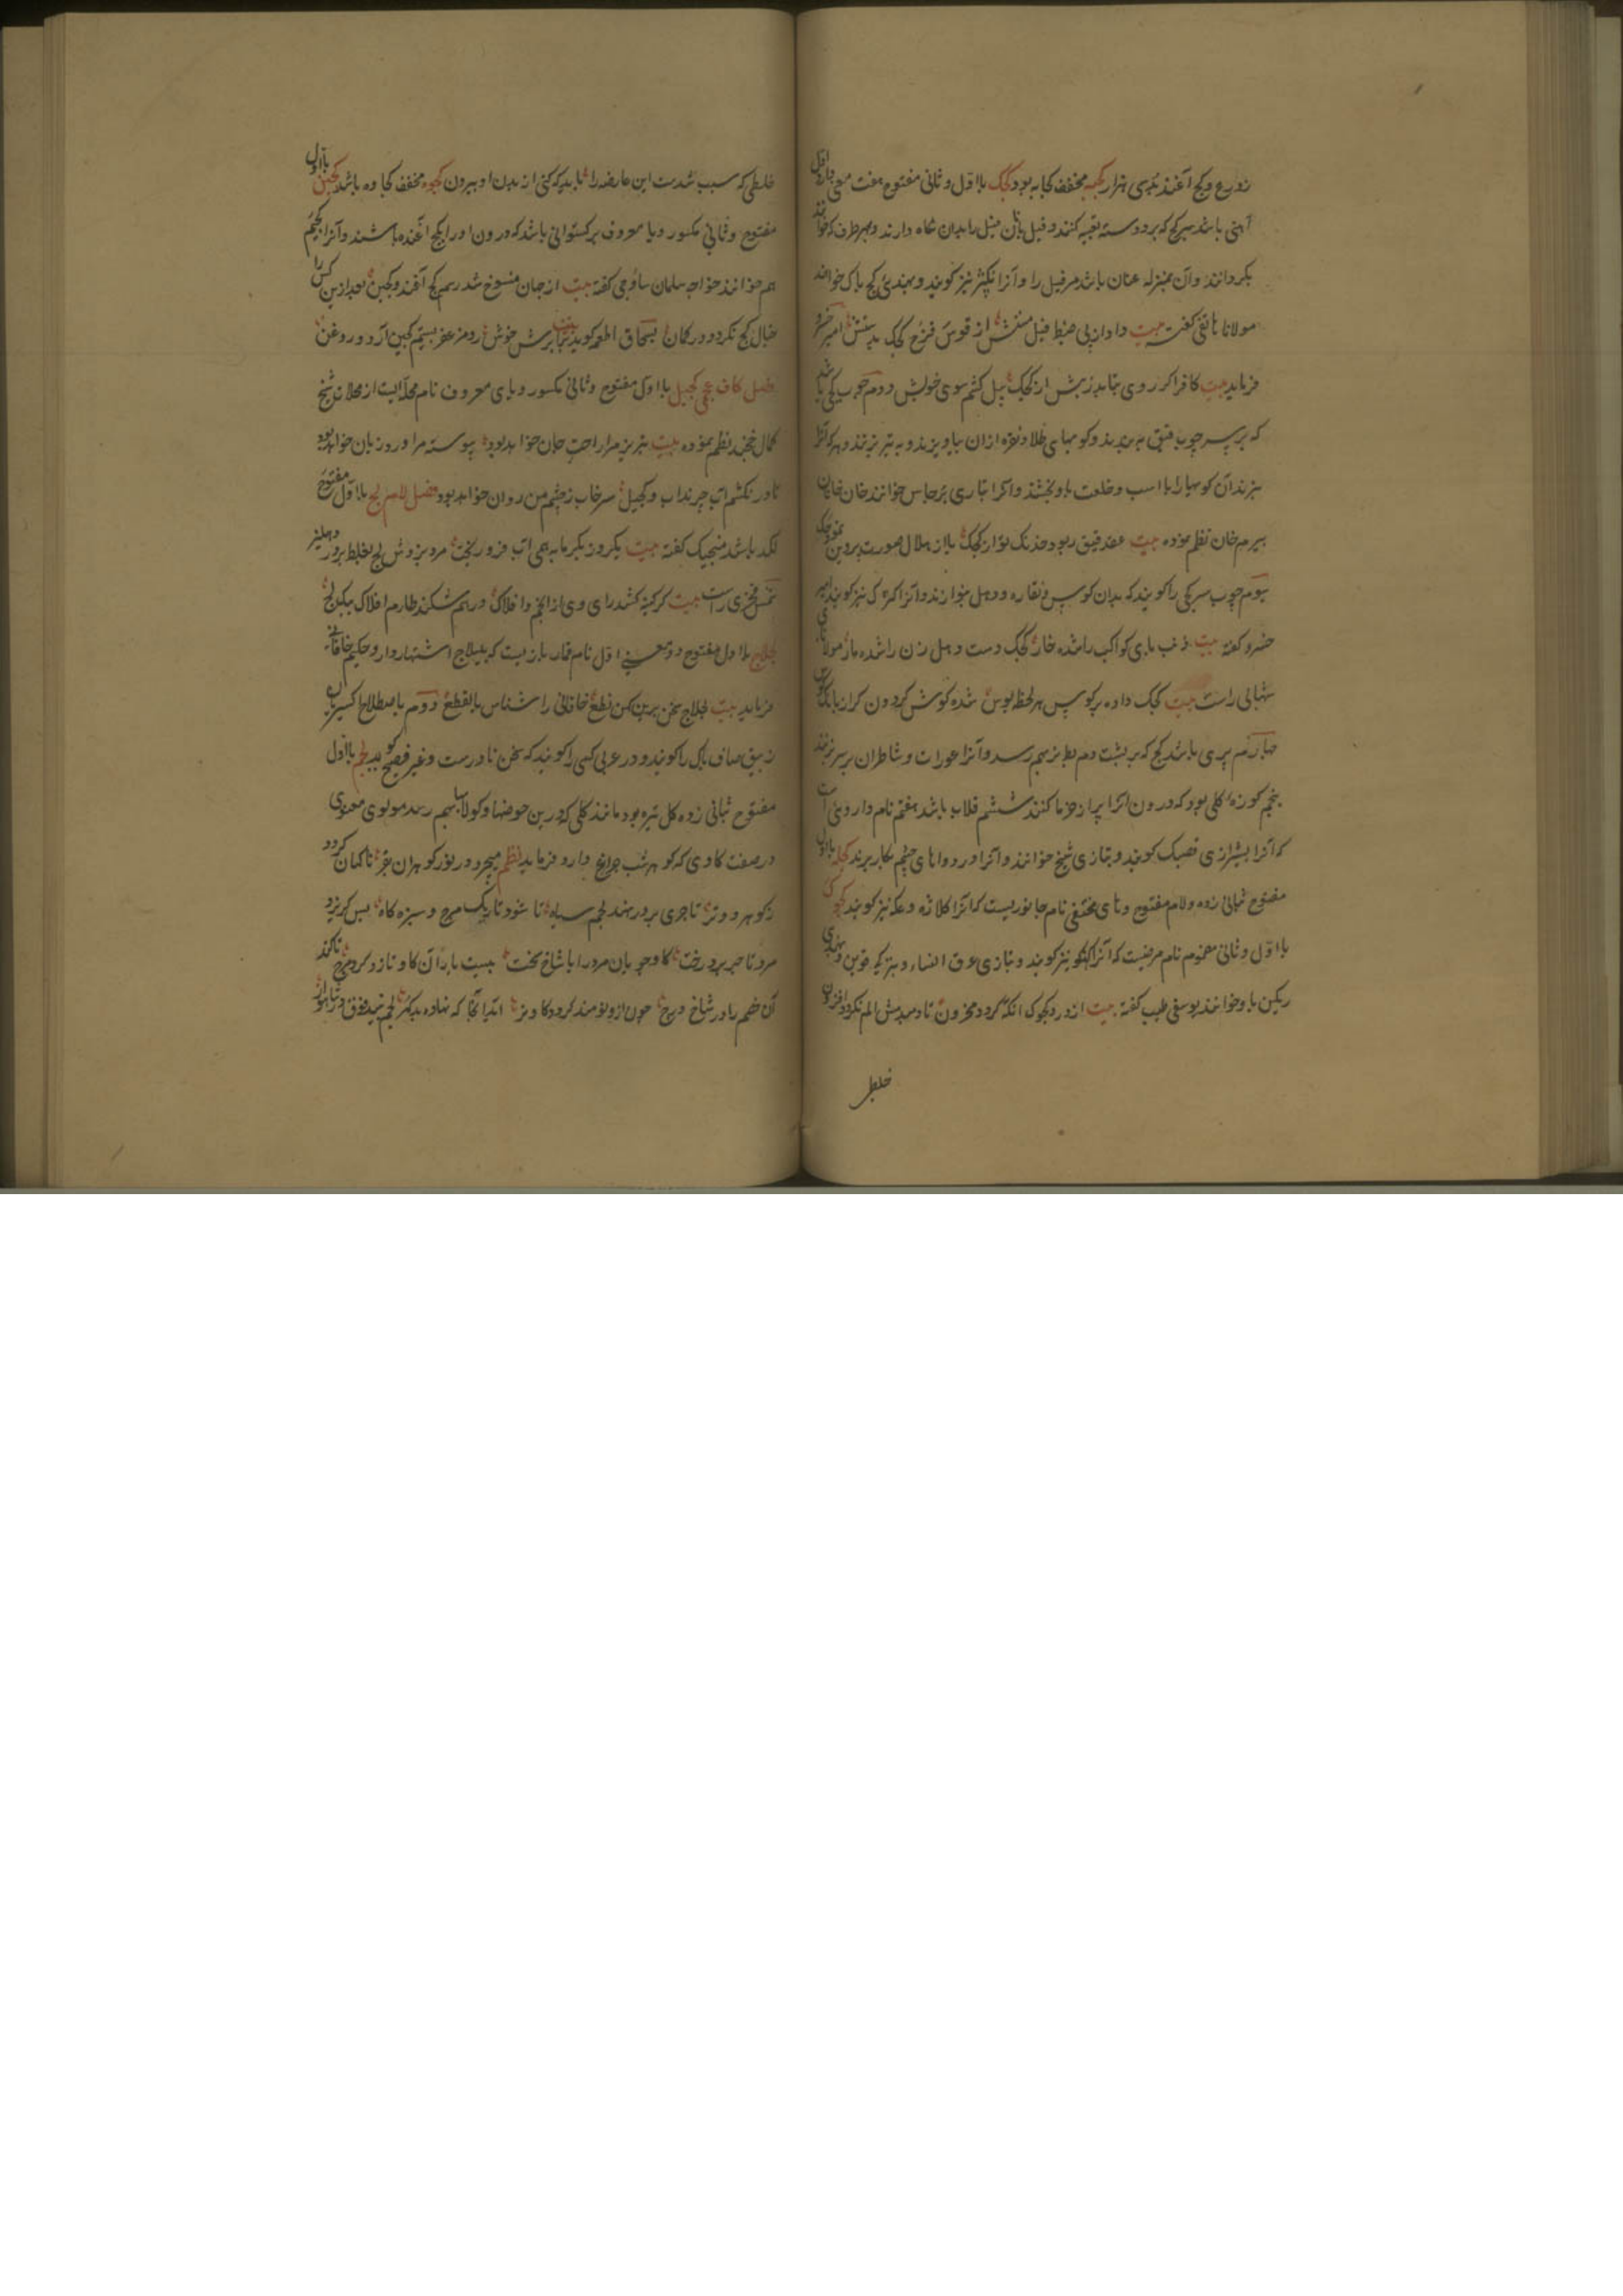 زدرع و کج آغند بدی هزار کجبه مخفف کجابه بود کجک با اول و ثانی مفتوح هفت معنی دارد اول
آهنی باشد سر کج که بر دسته تعبیه کنند و فیل بانان فیل را بدان نگاه دارند و بهر طرف که خواهند
بگردانند و آن بمنزله عنان باشد مر فیل را و آنرا نیز گویند و بهندی کج باک خوانند
مولانا هاتفی گفته بیت داد از پی ضبط فیل مستش از قوس قزح کجک بدستش امیر خسرو
فرماید بیت کافر اگر روی بتابد ز پیش از کجک پیل کشم سوی خویش دوم چوب کجی باشد
که بر سر چوب قپق به بندند و گویهای طلا و نقره از آن بیاویزند و به تیر بزنند و هر که آنرا
بزند آن گویها را با اسب و خلعت باو بخشند و آنرا بتازی برجاس خوانند خان خانان
بیرم خان نظم نموده بیت عقد قپق ربود خدنگ تو از کجک یا از هلال صورت پروین نمود حک
سوم چوب سر کجی را گویند که بدان کوس و نقاره و دهل بنوازند و آنرا کژک نیز گویند امیر
خسرو گفته بیت ذنب با کواکب رانده خار کجک دست دهل زن رانده مار مولانای
شهابی راست بیت کجک داده بر کوس هر لحظه بوس شده گوش گردون کر از بانگ کوس
چهارم پری باشد کج که بر پشت دم بط نر بهم رسد و آنرا عورات و شاطران بر سر زنند
پنجم کوزه گلی بود که درون آنرا پر از خرما کنند ششم قلاب باشد هفتم نام داروئی است
که آنرا بشیرازی گویند و بتازی شیخ خوانند و آنرا در دواهای چشم بکار برند کجله با اول
مفتوح بثانی زده و لام مفتوح و های مختفی نام جانوریست که آنرا کلاژه و عکه نیز گویند کجوک
با اول و ثانی مضموم نام مرضیست که آنرا نیز گویند و بتازی عرق النساء و بترکی و بهندی
ریگن باو خوانند یوسفی طبیب گفته بیت از درد کجوک آنکه گردد محزون تا دمبدمش الم نگردد افزون
خلطی
خلطی که سبب شدست این عارضه را باید که کنی از بدن او بیرون کجوه مخفف کجاوه باشد کجین با اول
مفتوح و ثانی مکسور و یا معروف برگستوانی باشد که درون او را بکج آغنده باشند و آنرا کجیم
هم خوانند خواجه سلمان ساوجی گفته بیت از جهان منسوخ شد رسم کج آغند و کجین بعد ازین کس را
خیال کج نگردد در کمان بسحاق اطعمه گوید بیت برش خوش رو مزعفر بستیم کجین آرد و روغن
فصل کاف عجمی کجیل با اول مفتوح و ثانی مکسور و یای معروف نام محله‌ایست از محلات شیخ
کمال خجند نظم نموده بیت تبریز مرا راحت جان خواهد بود پیوسته مرا ورد زبان خواهد بود
تا در نکشم آب چرنداب و کجیل سرخاب ز چشم من روان خواهد بود فصل لام لج با اول مفتوح
لگد باشد منجیک گفته بیت یکروز بگرمابه همی آب فرو ریخت مردی زدش لج بغلط بر در دهلیز
شمس فخری راست بیت گر کینه کشد رای وی از انجم و افلاک در هم شکند طارم افلاک بیک لج
لجلاج با اول مفتوح دو معنی اول نام قمار بازیست که بلیلاج اشتهار دارد حکیم خاقانی
فرماید بیت لجلاج سخن برین کهن نطع خاقانی را شناس بالقطع دوم باصطلاح اکسیریان
زیبق صاف پاک را گویند و در عربی کسی را گویند که سخن نادرست و غیر فصیح گوید لجم با اول
مفتوح بثانی زده گل تیره بود مانند گلی که در بن حوضها و کولابها بهم رسد مولوی معنوی
در صفت گاوی که گوهر شب چراغ دارد فرماید نظم میچرد در نور گوهر آن بقر ناگهان گردد
ز گوهر دورتر تاجری بر در نهد لجم سیاه تا شود تاریک مرج و سبزه گاه پس گریزد
مرد تاجر بر درخت گاو جویان مرد را با شاخ سخت بیست بار آن گاو تازد گرد مرج تا کند
آن خصم را در شاخ درج چون ازو نومید گردد گاو نر آید آنجا که نهاده بد گهر لجم بیند فوق در شاهوار